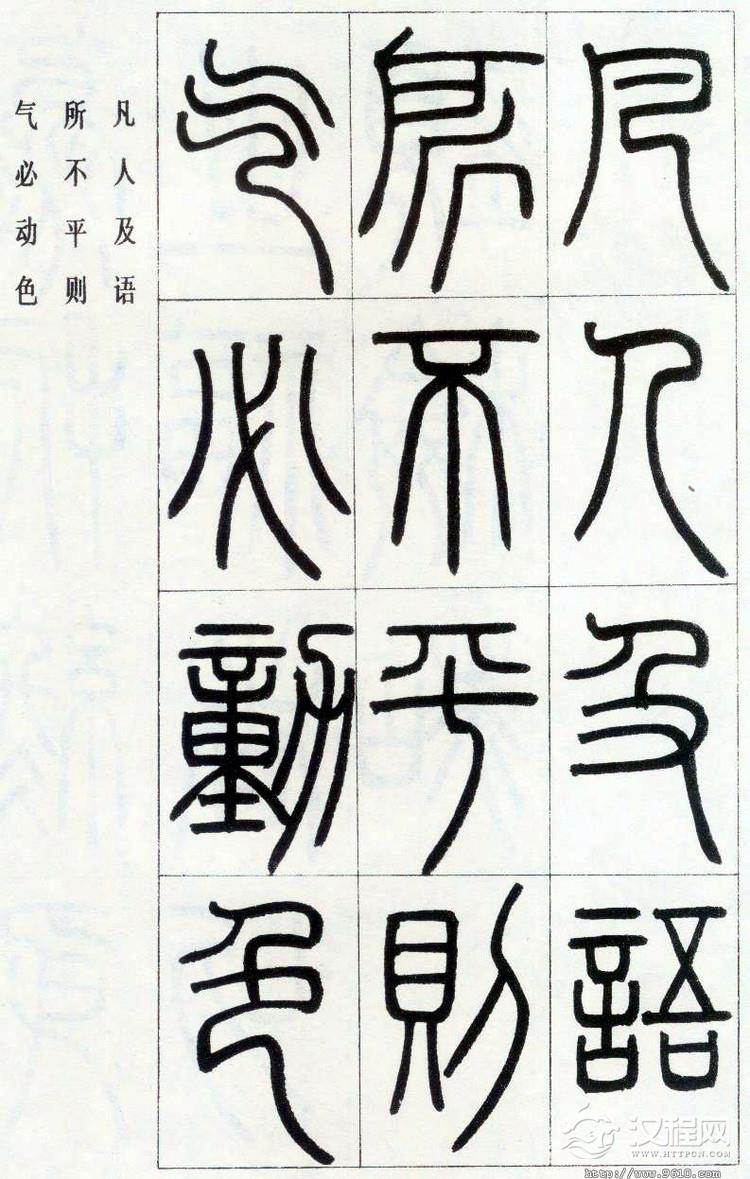 凡人及語
所不平則
气必動色
凡人及语
所不平则
气必动色
汉程网
WWW.HTTPCN.COM
http://www.9610.com